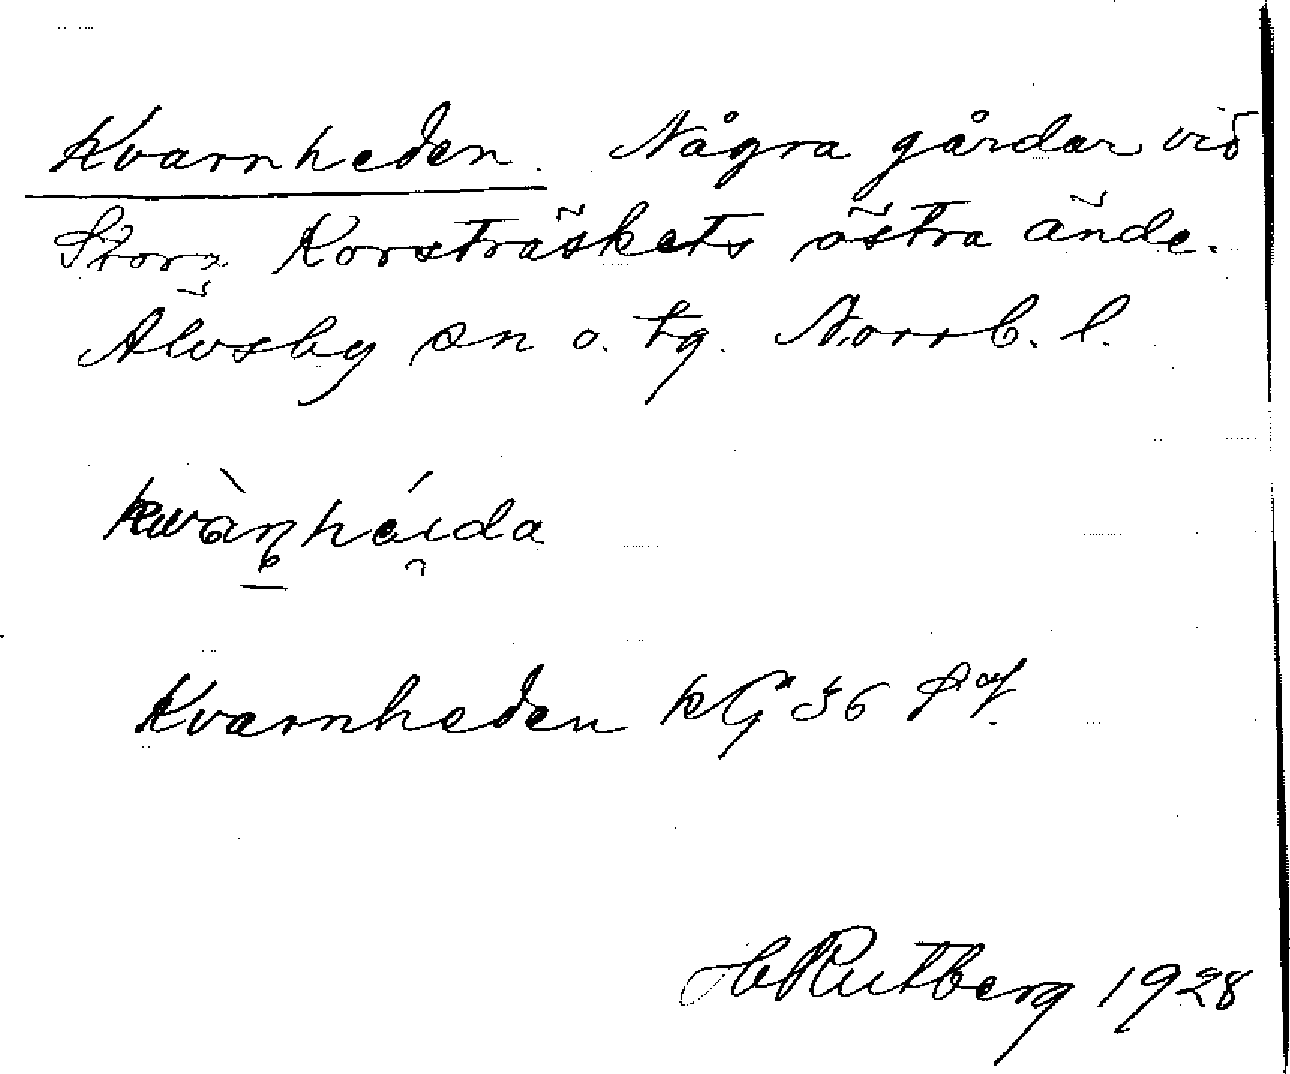 Kvarnheden. Några gårdar vid
Stora Korsträskets östra ände.
Älvsby sn o. tg. Norrb. l.
kwàn̥héi̯da
Kvarnheden kG 36
H Rutberg 1928